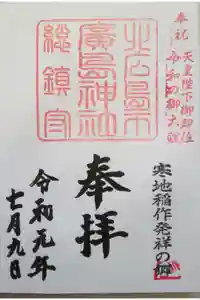 奉祝
天皇陛下御即位
令和の御大礼
北広島市
廣島神社
総鎮守
寒地稲作発祥の
奉拝
令和元年
七月九日